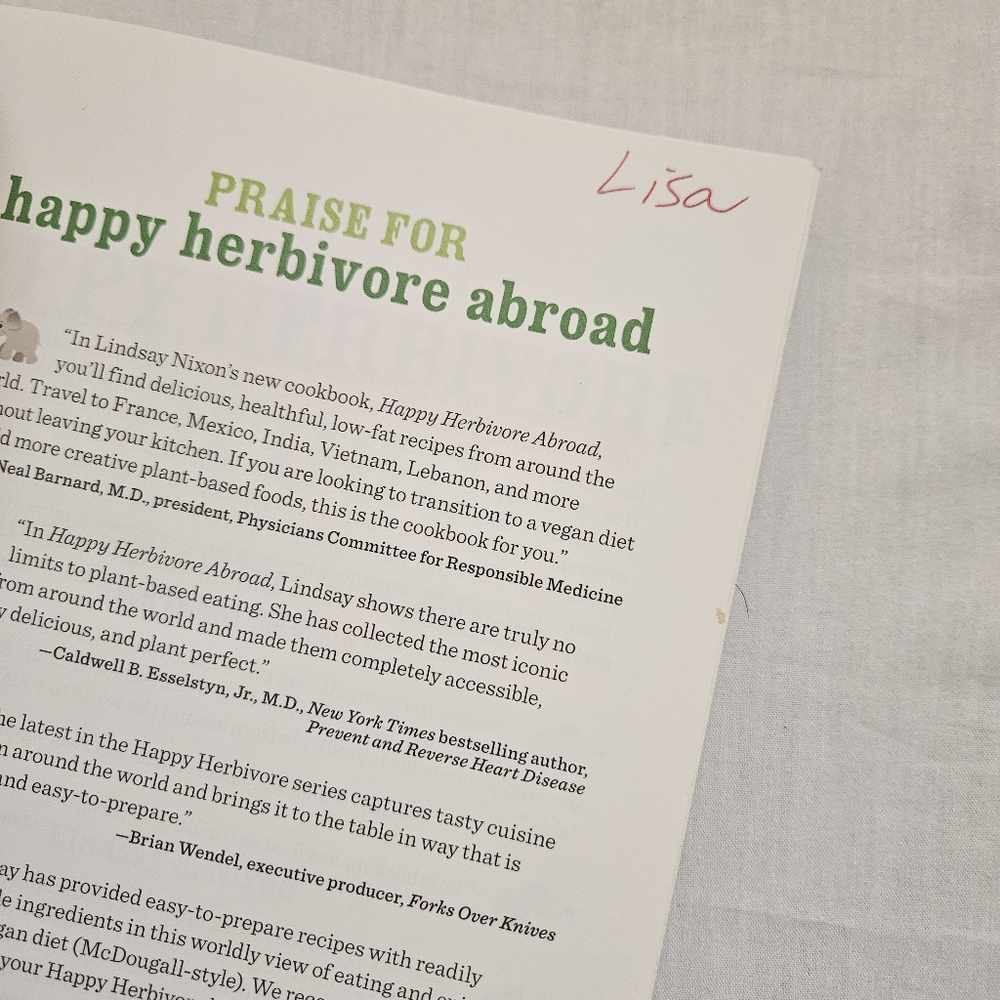 Lisa
PRAISE FOR
happy herbivore abroad
“In Lindsay Nixon’s new cookbook, Happy Herbivore Abroad,
you’ll find delicious, healthful, low-fat recipes from around the
rld. Travel to France, Mexico, India, Vietnam, Lebanon, and more
hout leaving your kitchen. If you are looking to transition to a vegan diet
d more creative plant-based foods, this is the cookbook for you.”
Neal Barnard, M.D., president, Physicians Committee for Responsible Medicine
“In Happy Herbivore Abroad, Lindsay shows there are truly no
limits to plant-based eating. She has collected the most iconic
from around the world and made them completely accessible,
y delicious, and plant perfect.”
—Caldwell B. Esselstyn, Jr., M.D., New York Times bestselling author,
Prevent and Reverse Heart Disease
he latest in the Happy Herbivore series captures tasty cuisine
m around the world and brings it to the table in way that is
and easy-to-prepare.”
—Brian Wendel, executive producer, Forks Over Knives
ay has provided easy-to-prepare recipes with readily
le ingredients in this worldly view of eating and
gan diet (McDougall-style). We
your Happy